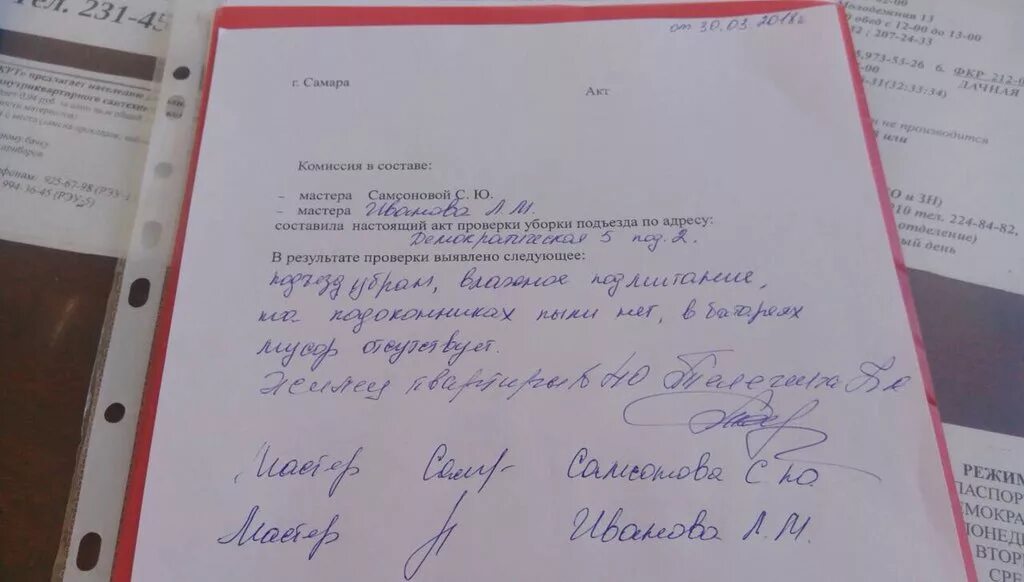 от 30.03.2018г
г. Самара
Акт
Комиссия в составе:
– мастера Самсоновой С. Ю.
– мастера Иванова Л.М.
составила настоящий акт проверки уборки подъезда по адресу:
Демократическая 5 под. 2.
В результате проверки выявлено следующее:
подъезд убран, влажное подметание,
на подоконниках пыли нет, в батареях
мусор отсутствует.
Жилец квартиры 40 Телегина
Мастер Самсонова С Ю
Мастер Иванова Л.М.
Тел. 231-45
КРТ» предлагает населению
фонам: 925-67-98 (РЭУ-1
994 16-45 (РЭУ-5)
Молодежная 13
обед с 12-00 до 13-00
12 ; 207-24-33
973-53-26 6. ФКР 212-0
ДАЧНАЯ
-31(32;33;34)
и не производится
8 или
Ю и ЗН)
010 тел. 224-84-82,
отделение)
ый день
РЕЖИМ
ПАСПОР
ЕМОКРА
ПОНЕД
ВТОР
СРЕ